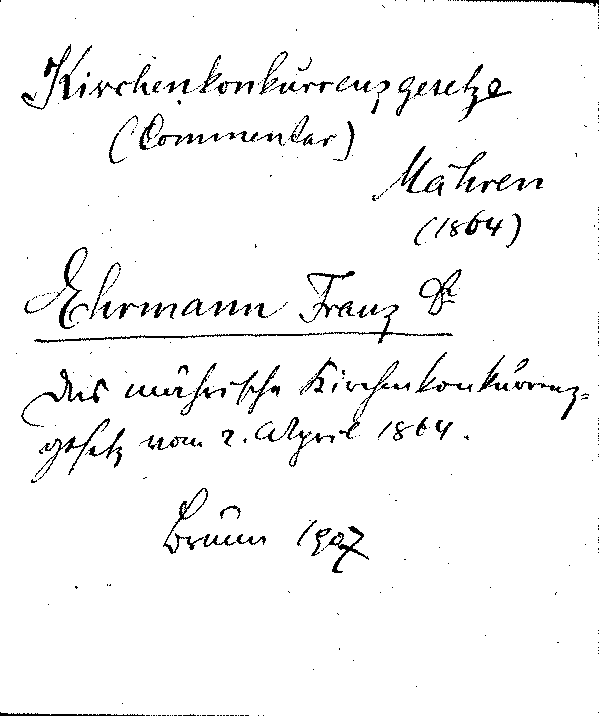 Kirchenkonkurrenzgesetze
(Commentar)
Mähren
(1864)
Ehrmann Franz Dr
Das mährische Kirchenkonkurrenz-
gesetz vom 2. April 1864.
Brünn 1907